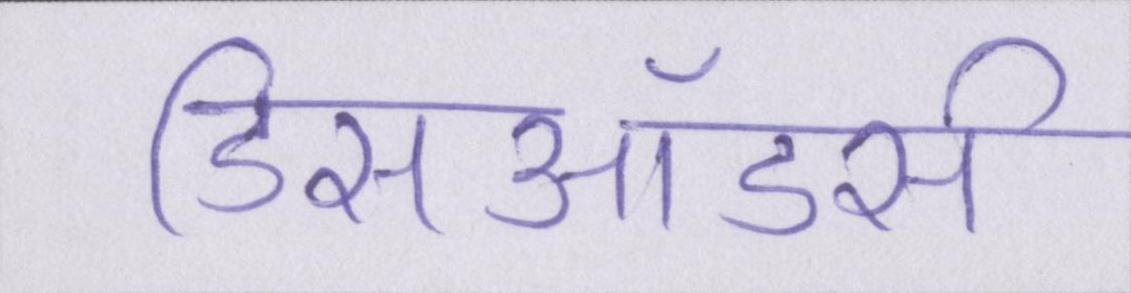 डिसऑडर्स